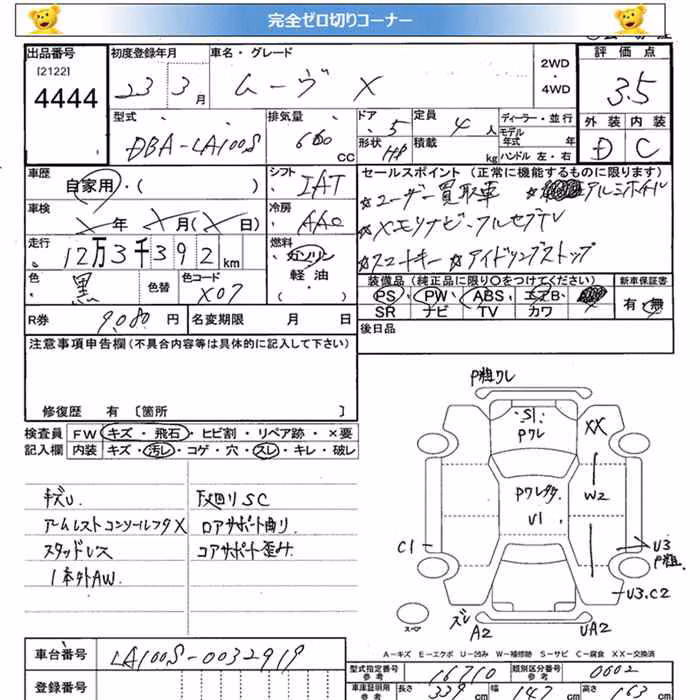 完全ゼロ切りコーナー
出品番号
[2122]
4444
初度登録年月
23 3月
車名・グレード
ムーヴ X
2WD
・4WD
評価点
3.5
外装 内装
D C
型式
DBA-LA100S
排気量
660 CC
ドア
・5
形状
HB
定員
4人
積載
kg
ディーラー・並行
モデル
年式 年
ハンドル 左・右
車歴
自家用・( )
シフト
IAT
セールスポイント (正常に機能するものに限ります)
☆ユーザー買取車 アルミホイル
☆メモリナビ・フルセグTV
☆スマートキー ☆アイドリングストップ
車検
年 月( 日)
冷房
AAC
走行
12万3千392km
燃料
ガソリン
軽・油
・( )
色
黒
色替
色コード
X07
装備品 (純正品に限り○をつけてください)
PS・PW・ABS・エアB・
SR ナビ TV カワ
新車保証書
有・無
R券 9,080円
名変期限 月 日
後日品
注意事項申告欄(不具合内容等は具体的に記入して下さい)
修復歴 有 〔箇所 〕
検査員 FW キズ・飛石・ヒビ割・リペア跡・×要
記入欄 内装 キズ・汚レ・コゲ・穴・スレ・キレ・破レ
キズU
アームレストコンソールフタX
スタッドレス
1本外AW.
下廻りSC
ロアサポート曲り
コアサポート歪み
P粗ワレ
S1
Pワレ
XX
W2
U1
C1
U3
P粗
U3.C2
スペア
ズレ
A2
UA2
A-キズ E-エクボ U-凹み W-補修跡 S-サビ C-腐食 XX-交換済
車台番号
LA100S-0032919
登録番号
型式指定番号
参考
16710
類別区分番号
参考
0002
車庫証明用
参考
長さ
339
cm
幅
147
cm
高さ
163
cm